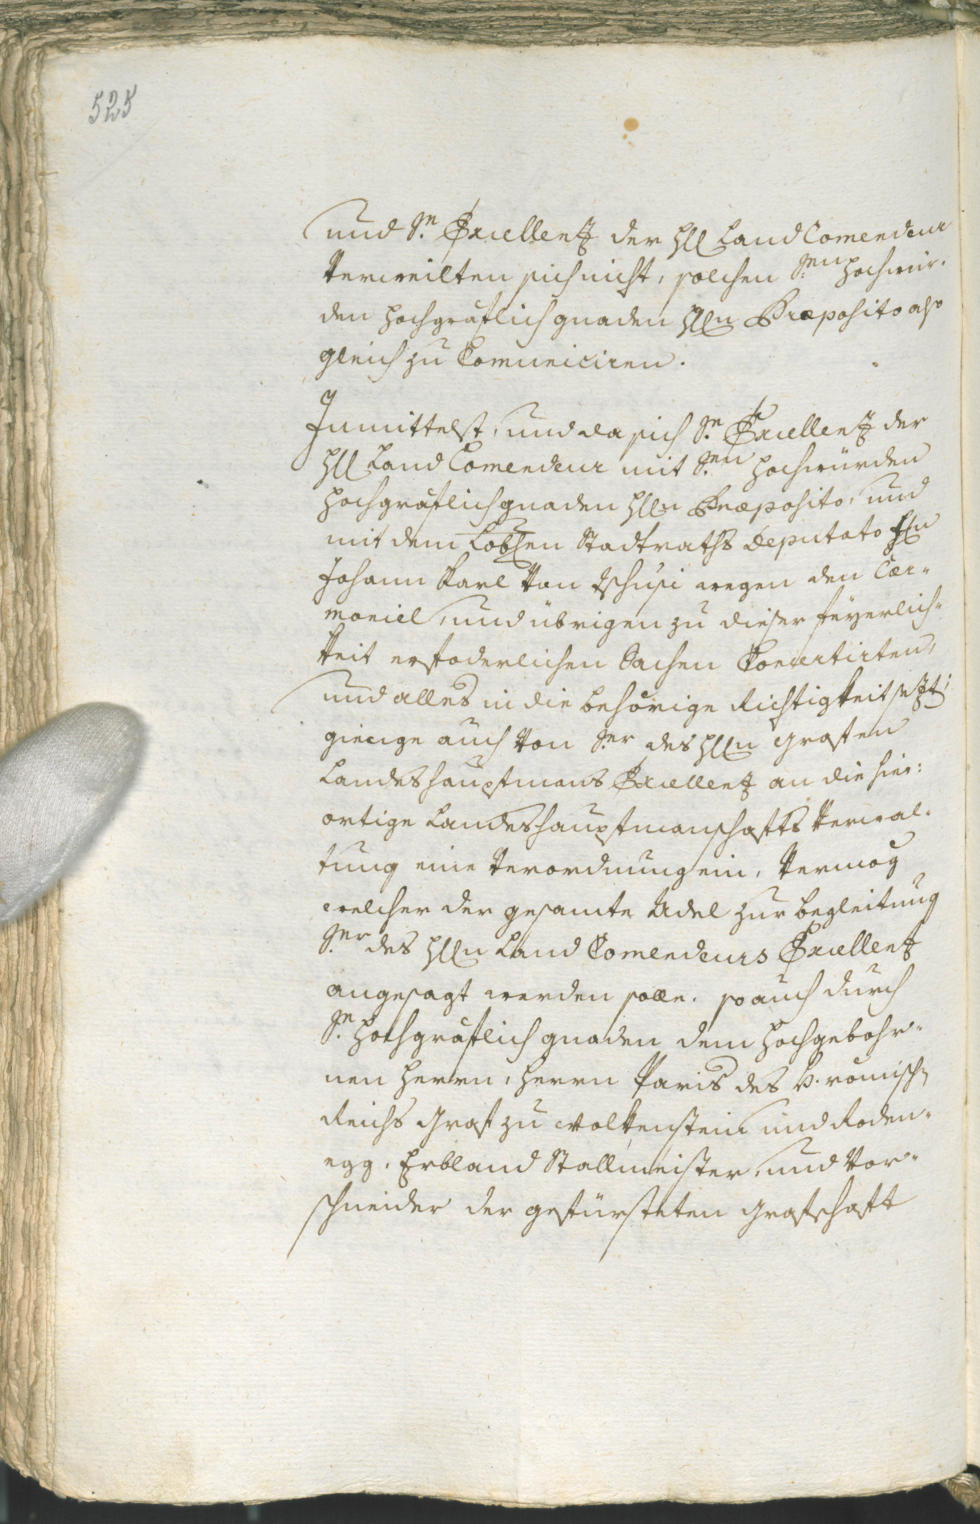 525
und Se. Excellentz der Hl Land Comendeur
verweilten sich nicht, solchen Sr.en Hochwür-
den Hochgräflich gnaden Hlln Præposito also
gleich zu Comuniciren.
Inmittelst, und da sich Se. Excellentz der
Hl Land Comendeur mit Sr.en Hochwürden
Hochgräflich gnaden Hlln Præposito, und
mit dem Lobl.en Stadtraths Deputato Hln
Johann Karl von Tschusi wegen den Cær-
moniel, und übrigen zu dieser feyerlich-
keit erfoderlichen Sachen Concertirten,
und alles in die behörige Richtigkeit sezte;
gienge auch von Sr. des Hlln Grafen
Landeshauptmans Excellentz an die hier-
ortige Landeshauptmanschafts Verwal-
tung eine Verordnung ein, vermög
welcher der gesamte Adel zur begleitung
Sr. des Hlln Land Comendeurs Excellentz
angesagt werden solle. so auch durch
Se. Hochgräflich gnaden dem Hochgebohr-
nen Herrn, Herrn Paris des h. römisch
Reichs Graf zu Wolkenstein und Roden-
egg, Erbland Stallmeister, und Vor-
schneider der gefürsteten Grafschaft